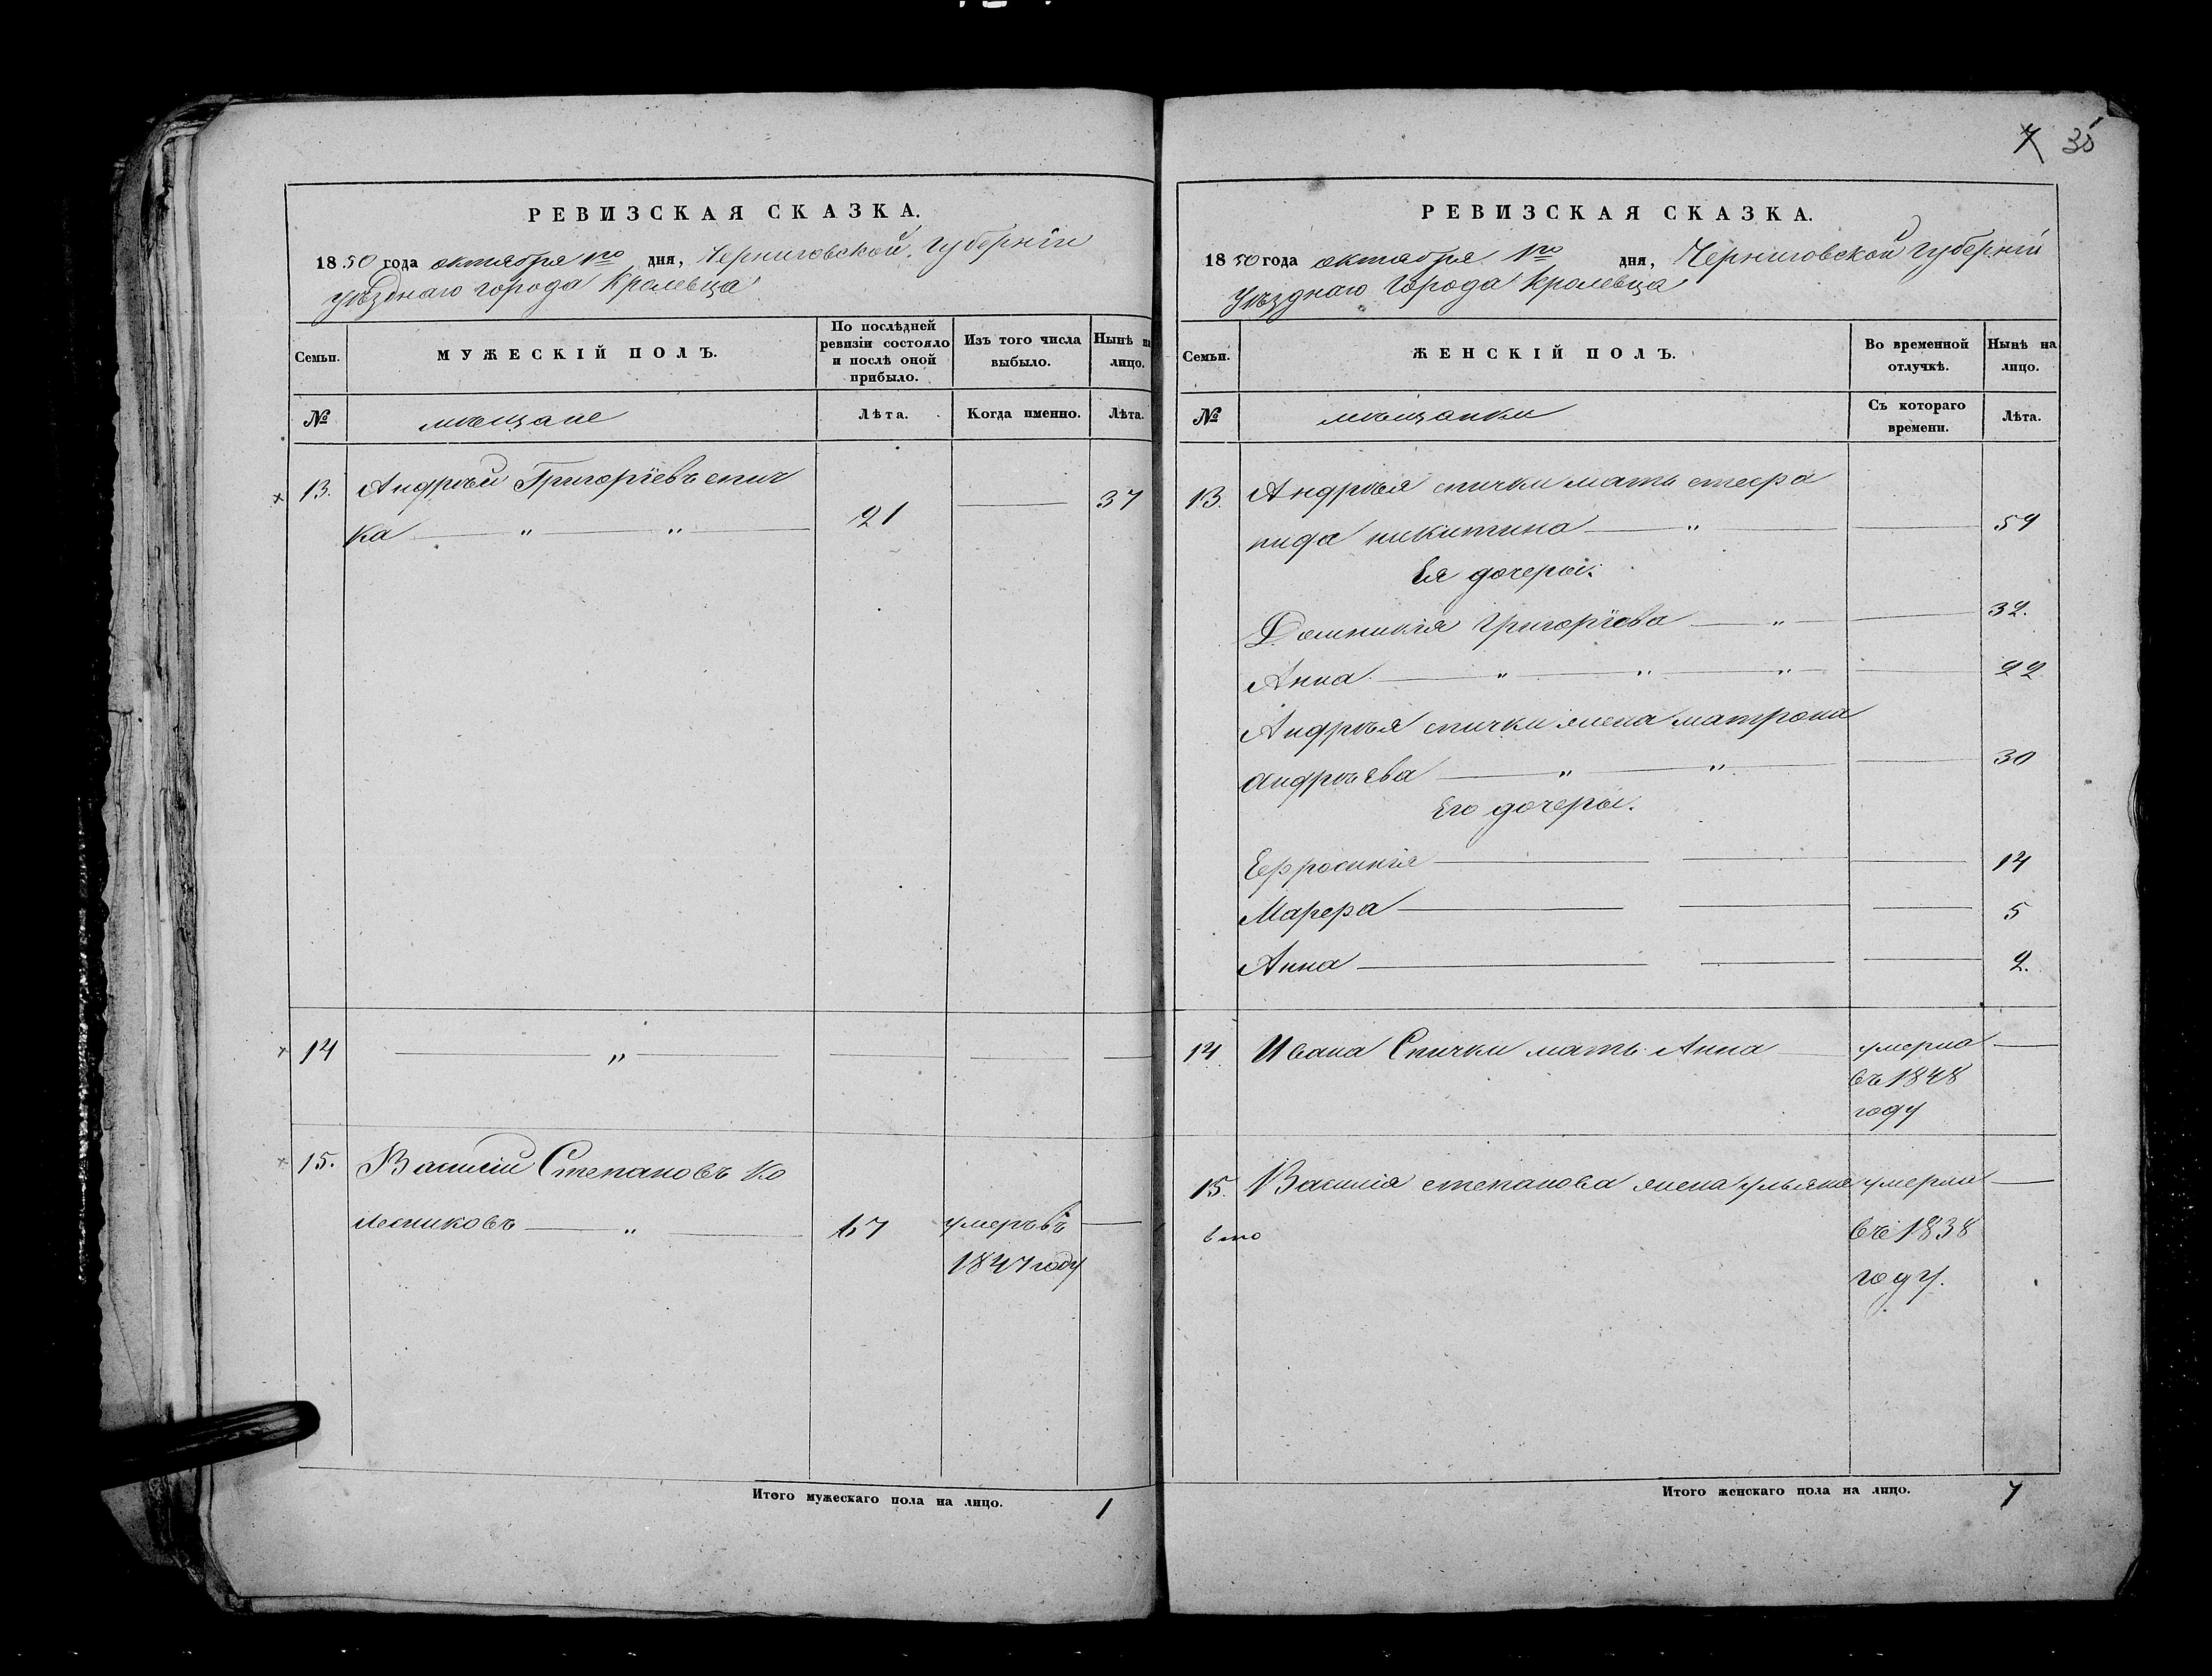 7 35
РЕВИЗСКАЯ СКАЗКА.
1850 года октября 1го дня, Черниговской Губерніи
Уѣзднаго города Кролевца
Семьи.
МУЖЕСКІЙ ПОЛЪ.
По послѣдней ревизіи состояло и послѣ оной прибыло.
Изъ того числа выбыло.
Нынѣ на лицо.
№
мѣщане
Лѣта.
Когда именно.
Лѣта.
13. Андрѣй Григоріевъ спич 37
ка — " — " — 21
14 — " —
15. Василій Степановъ Ко
лесниковъ — " — 67 умеръ въ —
1847 году
Итого мужескаго пола на лицо. 1
РЕВИЗСКАЯ СКАЗКА.
1850 года октября 1го дня, Черниговской Губерніи
Уѣзднаго Города Кролевца
Семьи.
ЖЕНСКІЙ ПОЛЪ.
Во временной отлучкѣ.
Нынѣ на лицо.
№
мѣщанки
Съ котораго времени.
Лѣта.
13. Андрѣя спички мать
нида никитина — " — 59
Ея дочеры:
Домникія Григоріева — " — 32.
Анна — " — " — " — 22
Андрѣя спички жена матрона
андрѣева — " — " — 30
Его дочеры.
Ефросинія — 14
Марфа — 5
Анна — 2.
14. Ивана Спички мать Анна умерла —
въ 1848
году
15. Василія степанова жена ульяна умерла —
въ 1838
году.
Итого женскаго пола на лицо. 7